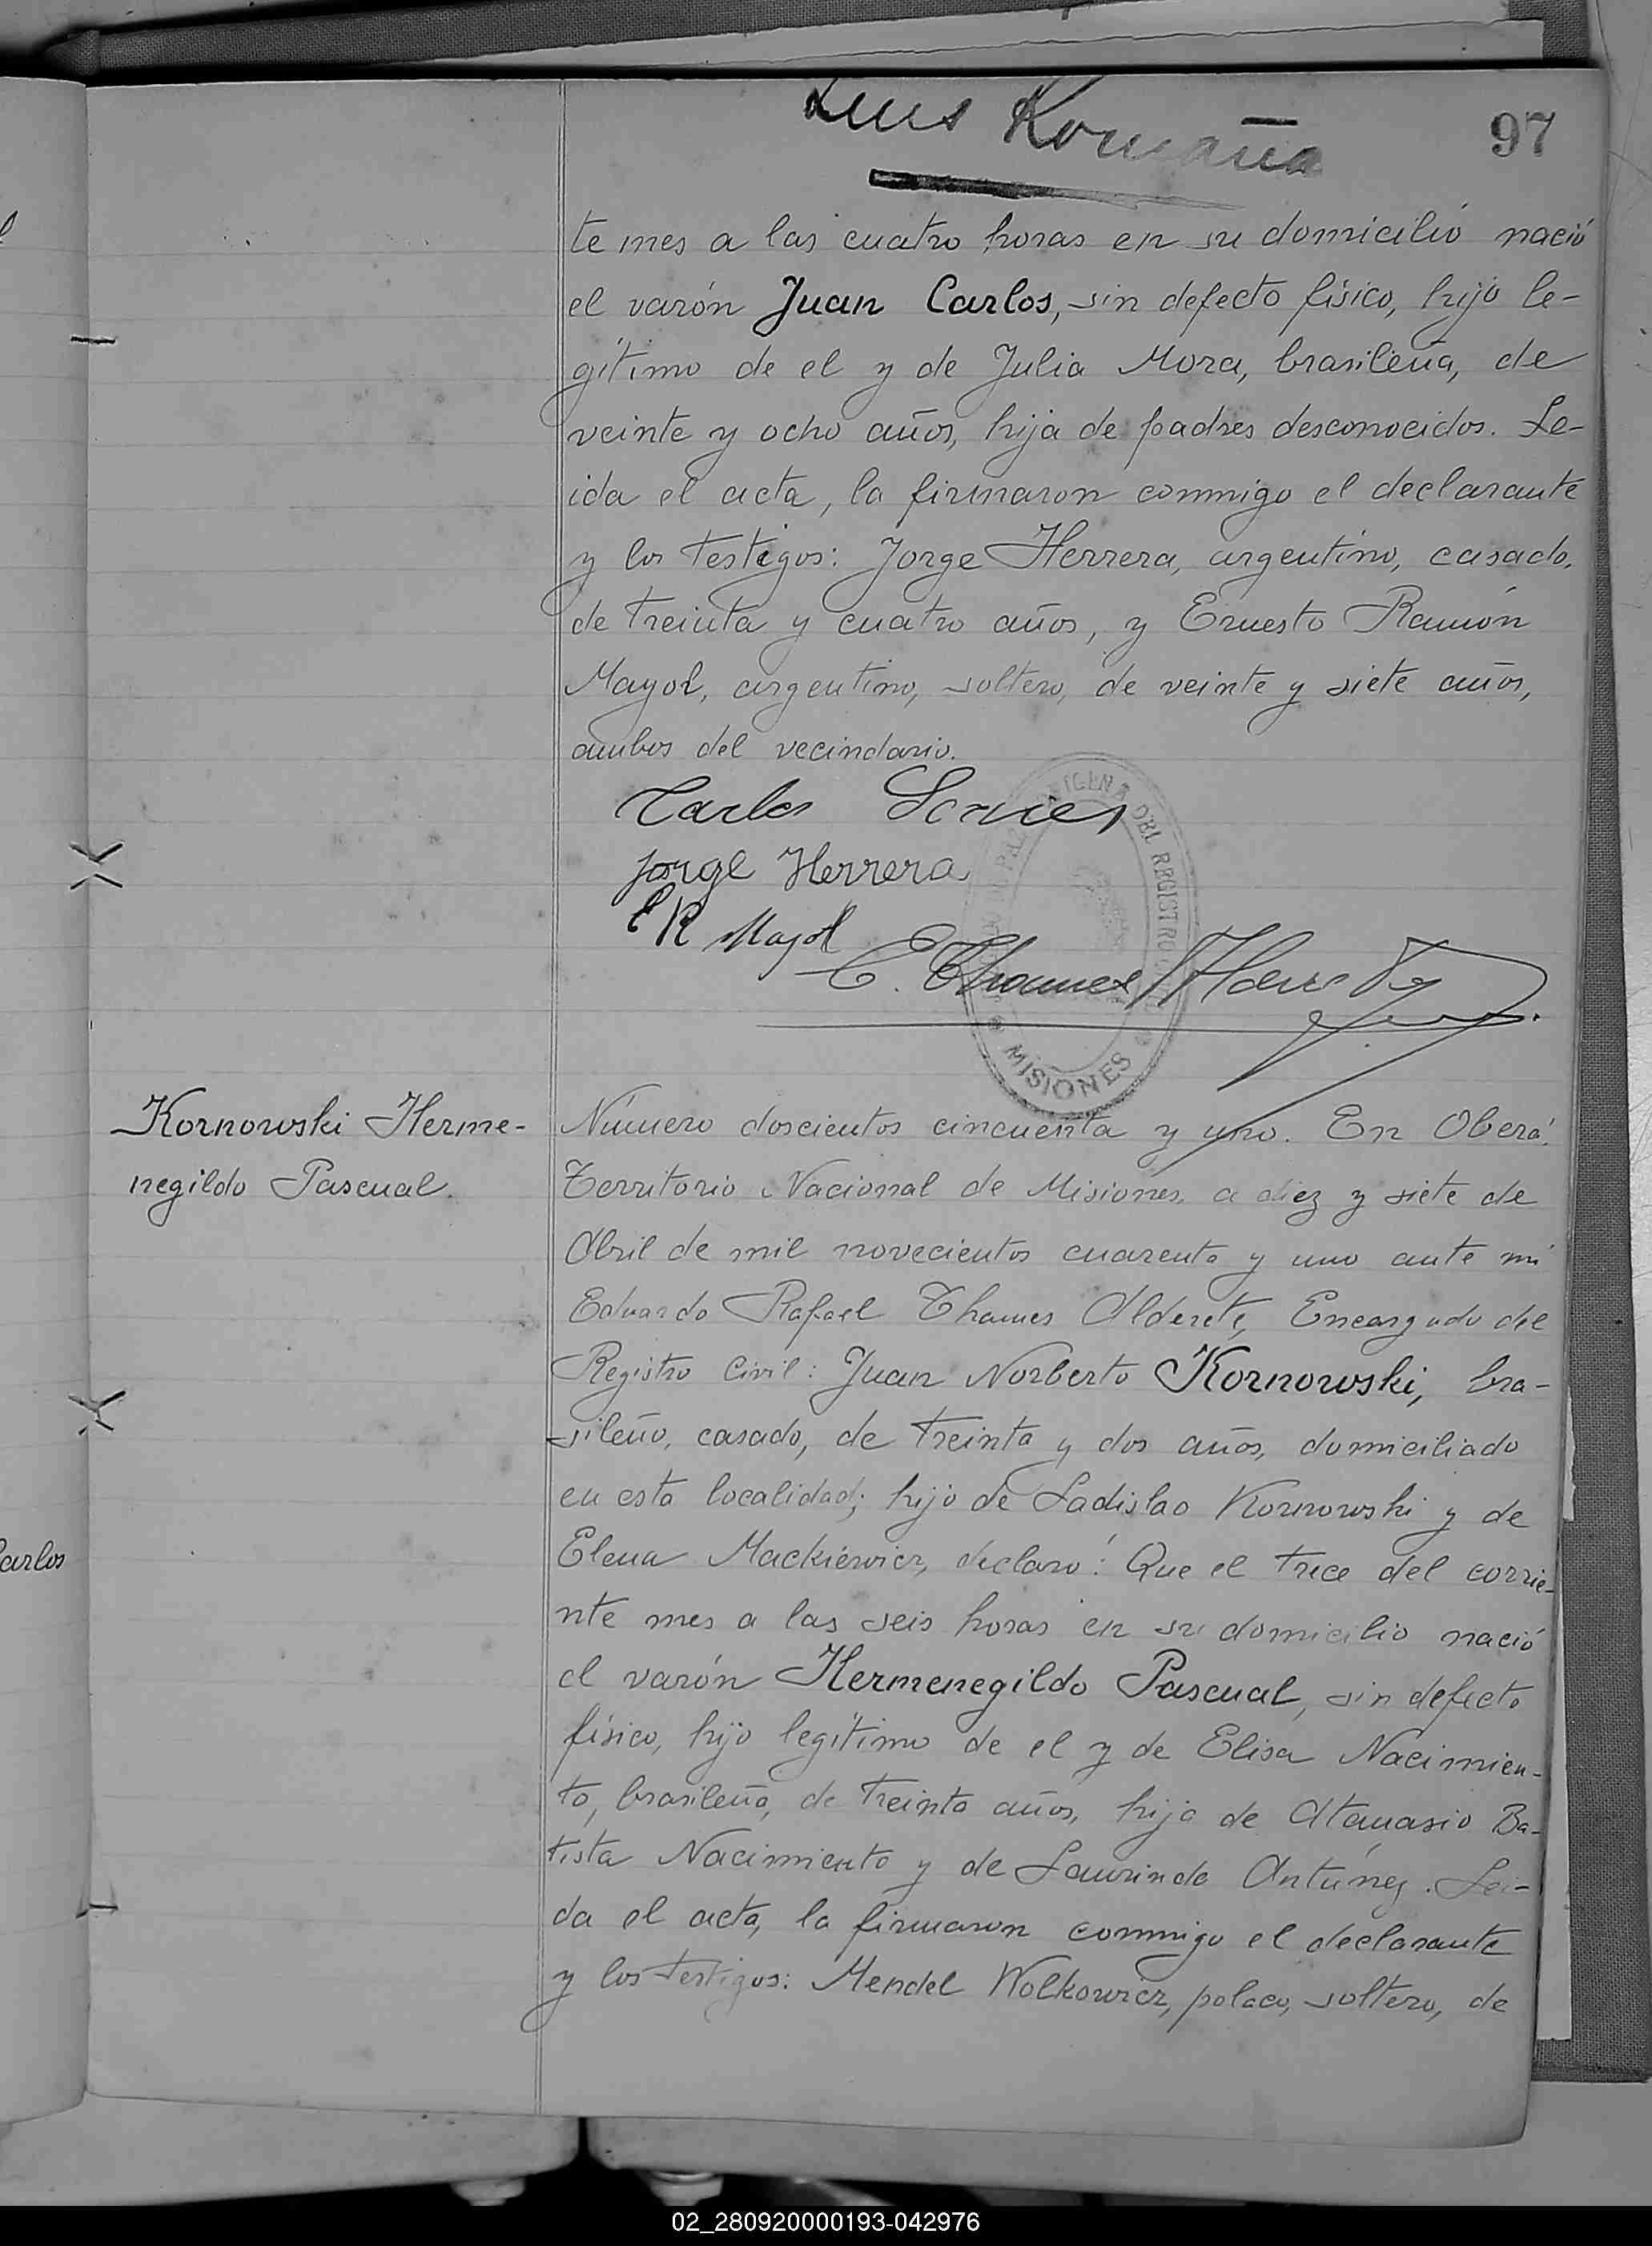 Luis Romaña
97
te mes a las cuatro horas en su domicilio nació
el varón Juan Carlos, sin defecto físico, hijo le-
gítimo de el y de Julia Mora, brasileña, de
veinte y ocho años, hija de padres desconocidos. Le-
ida el acta, la firmaron conmigo el declarante
y los testigos: Jorge Herrera, argentino, casado,
de treinta y cuatro años, y Ernesto Ramón
Mayol, argentino, soltero, de veinte y siete años,
ambos del vecindario.
Carlos
Jorge Herrera
E R Mayol
E. Thames
DEL REGISTRO
MISIONES
Kornowski Herme-
negildo Pascual.
Número doscientos cincuenta y uno. En Oberá,
Territorio Nacional de Misiones, a diez y siete de
Abril de mil novecientos cuarenta y uno ante mi
Eduardo Rafael Thames Alderete, Encargado del
Registro Civil: Juan Norberto Kornowski, bra-
sileño, casado, de treinta y dos años, domiciliado
en esta localidad; hijo de Ladislao Kornowski y de
Elena Mackiewicz, declaró: Que el trece del corrie-
nte mes a las seis horas en su domicilio nació
el varón Hermenegildo Pascual, sin defecto
físico, hijo legítimo de el y de Elisa Nacimien-
to, brasileña, de treinta años, hija de Atanasio Ba-
tista Nacimiento y de Laurinda Antúnez. Leí-
da el acta, la firmaron conmigo el declarante
y los testigos: Mendel Wolkowicz, polaco, soltero, de
arlos
02_280920000193-042976